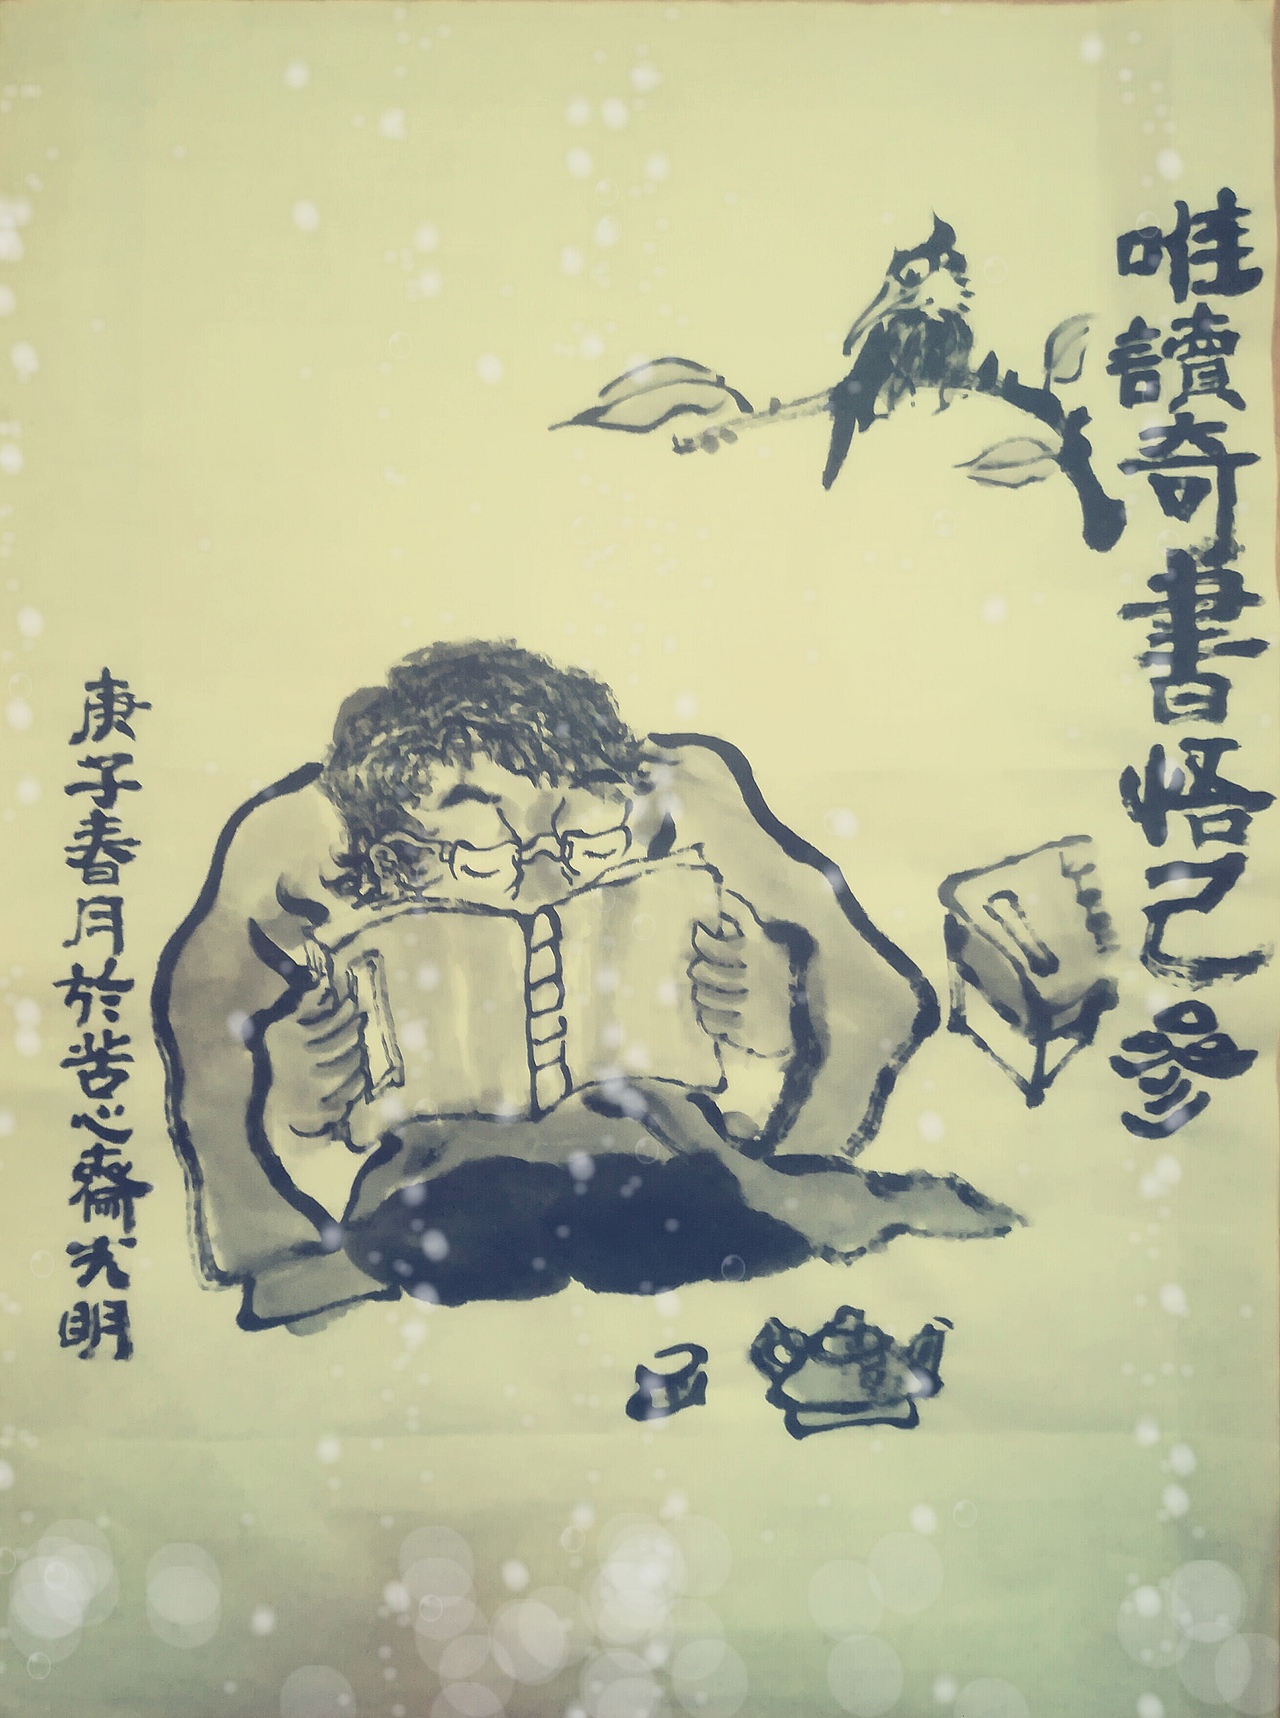 唯讀奇書悟己參
庚子春月於苦心齋光明